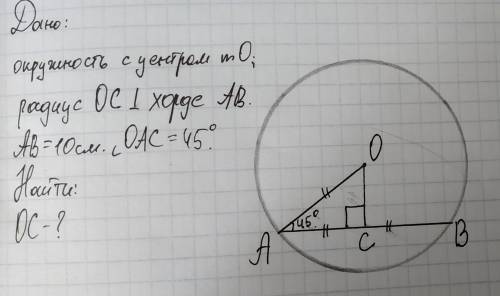 Дано:
окружность с центром т O;
радиус OC ⊥ хорде AB.
AB=10см. ∠OAC=45°.
Найти:
OC-?
O
45°
A
C
B